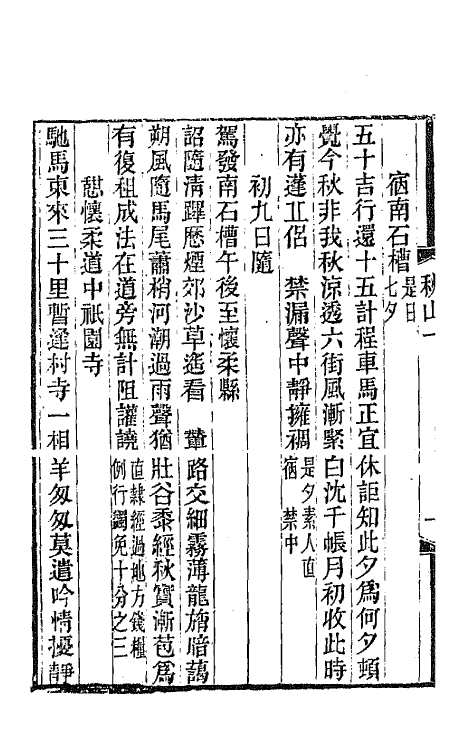 宿南石槽是日七夕
五十吉行還十五計程車馬正宜休詎知此夕爲何夕頓
覺今秋非我秋涼透六街風漸緊白沈千帳月初收此時
亦有蓬丘侶　禁漏聲中靜擁裯是夕素人直宿　禁中
初九日隨
駕發南石槽午後至懷柔縣
詔隨清蹕歷煙郊沙草遙看　輦路交細霧薄龍旂暗藹
朔風隨馬尾蕭梢河潮過雨聲猶壯谷黍經秋實漸苞爲
有復租成法在道旁無計阻讙譊直隸經過地方錢糧例行蠲免十分之三
憇懷柔道中祇園寺
馳馬東來三十里暫逢村寺一相羊匆匆莫遣吟情擾靜
秋山一
一